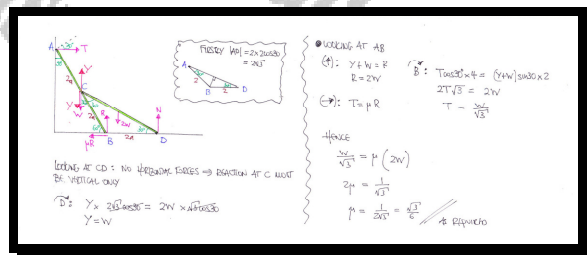 A
30°
T
2a
Y
C
Y
W
2a
R
2W
N
60°
μR
B
2a
30°
D
FIRSTLY |AD| = 2×2cos30
= 2√3
A
2
B
2
D
LOOKING AT CD : NO HORIZONTAL FORCES ⇒ REACTION AT C MUST
BE VERTICAL ONLY
D: Y × 2√3 cos30 = 2W × √3 cos30
Y = W
LOOKING AT AB
(↑): Y + W = R
R = 2W
(→): T = μR
B: Tcos30 × 4 = (Y+W) sin30 × 2
2T√3 = 2W
T = W/√3
HENCE
W/√3 = μ (2W)
2μ = 1/√3
μ = 1/2√3 = √3/6
AS REQUIRED